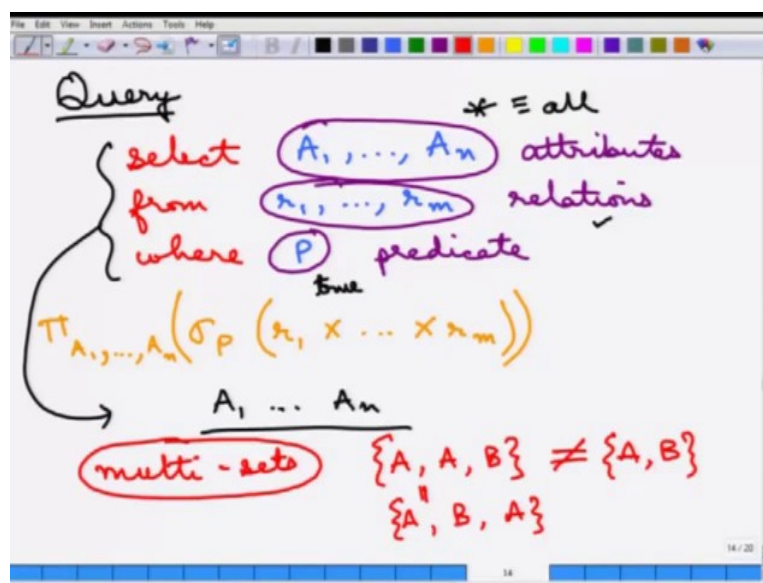 File Edit View Insert Actions Tools Help
Query
* ≡ all
select A₁, ..., Aₙ attributes
from r₁, ..., rₘ relations
where P predicate
true
π A₁, ..., Aₙ (σ_P (r₁ × ... × rₘ))
A₁ ... Aₙ
multi-sets {A, A, B} ≠ {A, B}
"
{A, B, A}
14 / 20
14